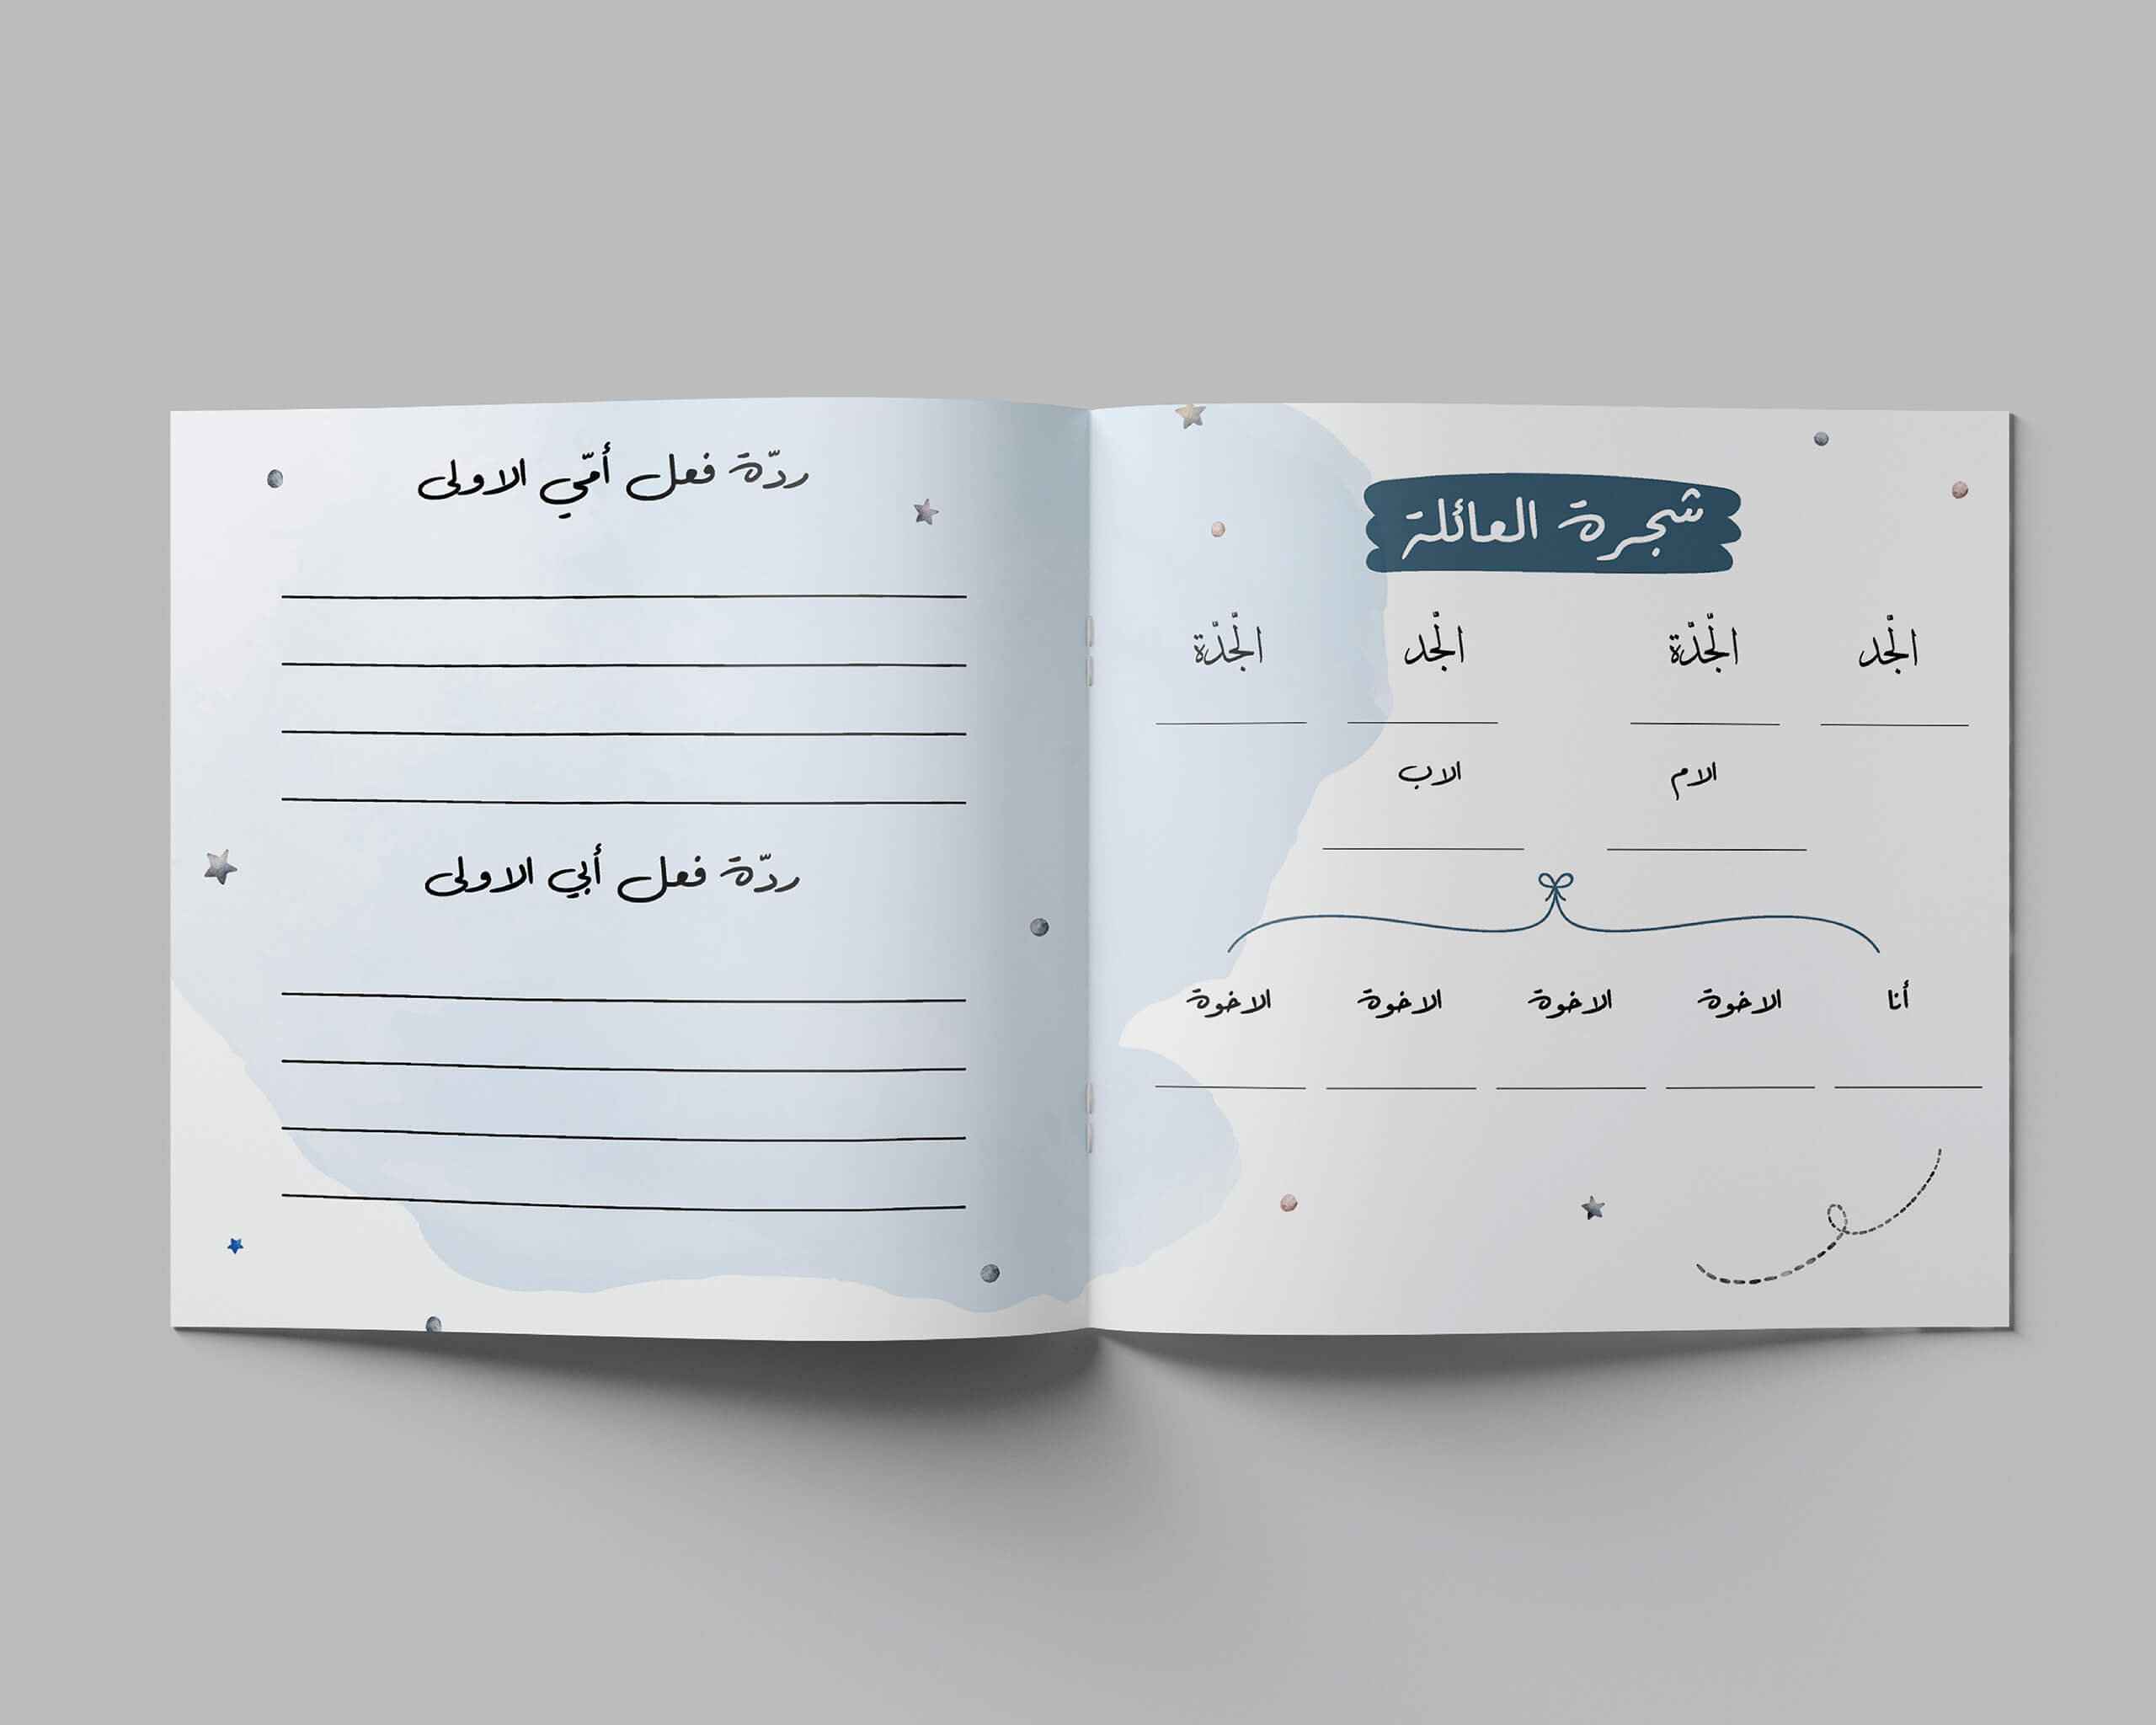 شجرة العائلة
الجّد الجّدّة الجّد الجّدّة
الام الاب
أنا الاخوة الاخوة الاخوة الاخوة
ردّة فعل أمّي الاولى
ردّة فعل أبي الاولى